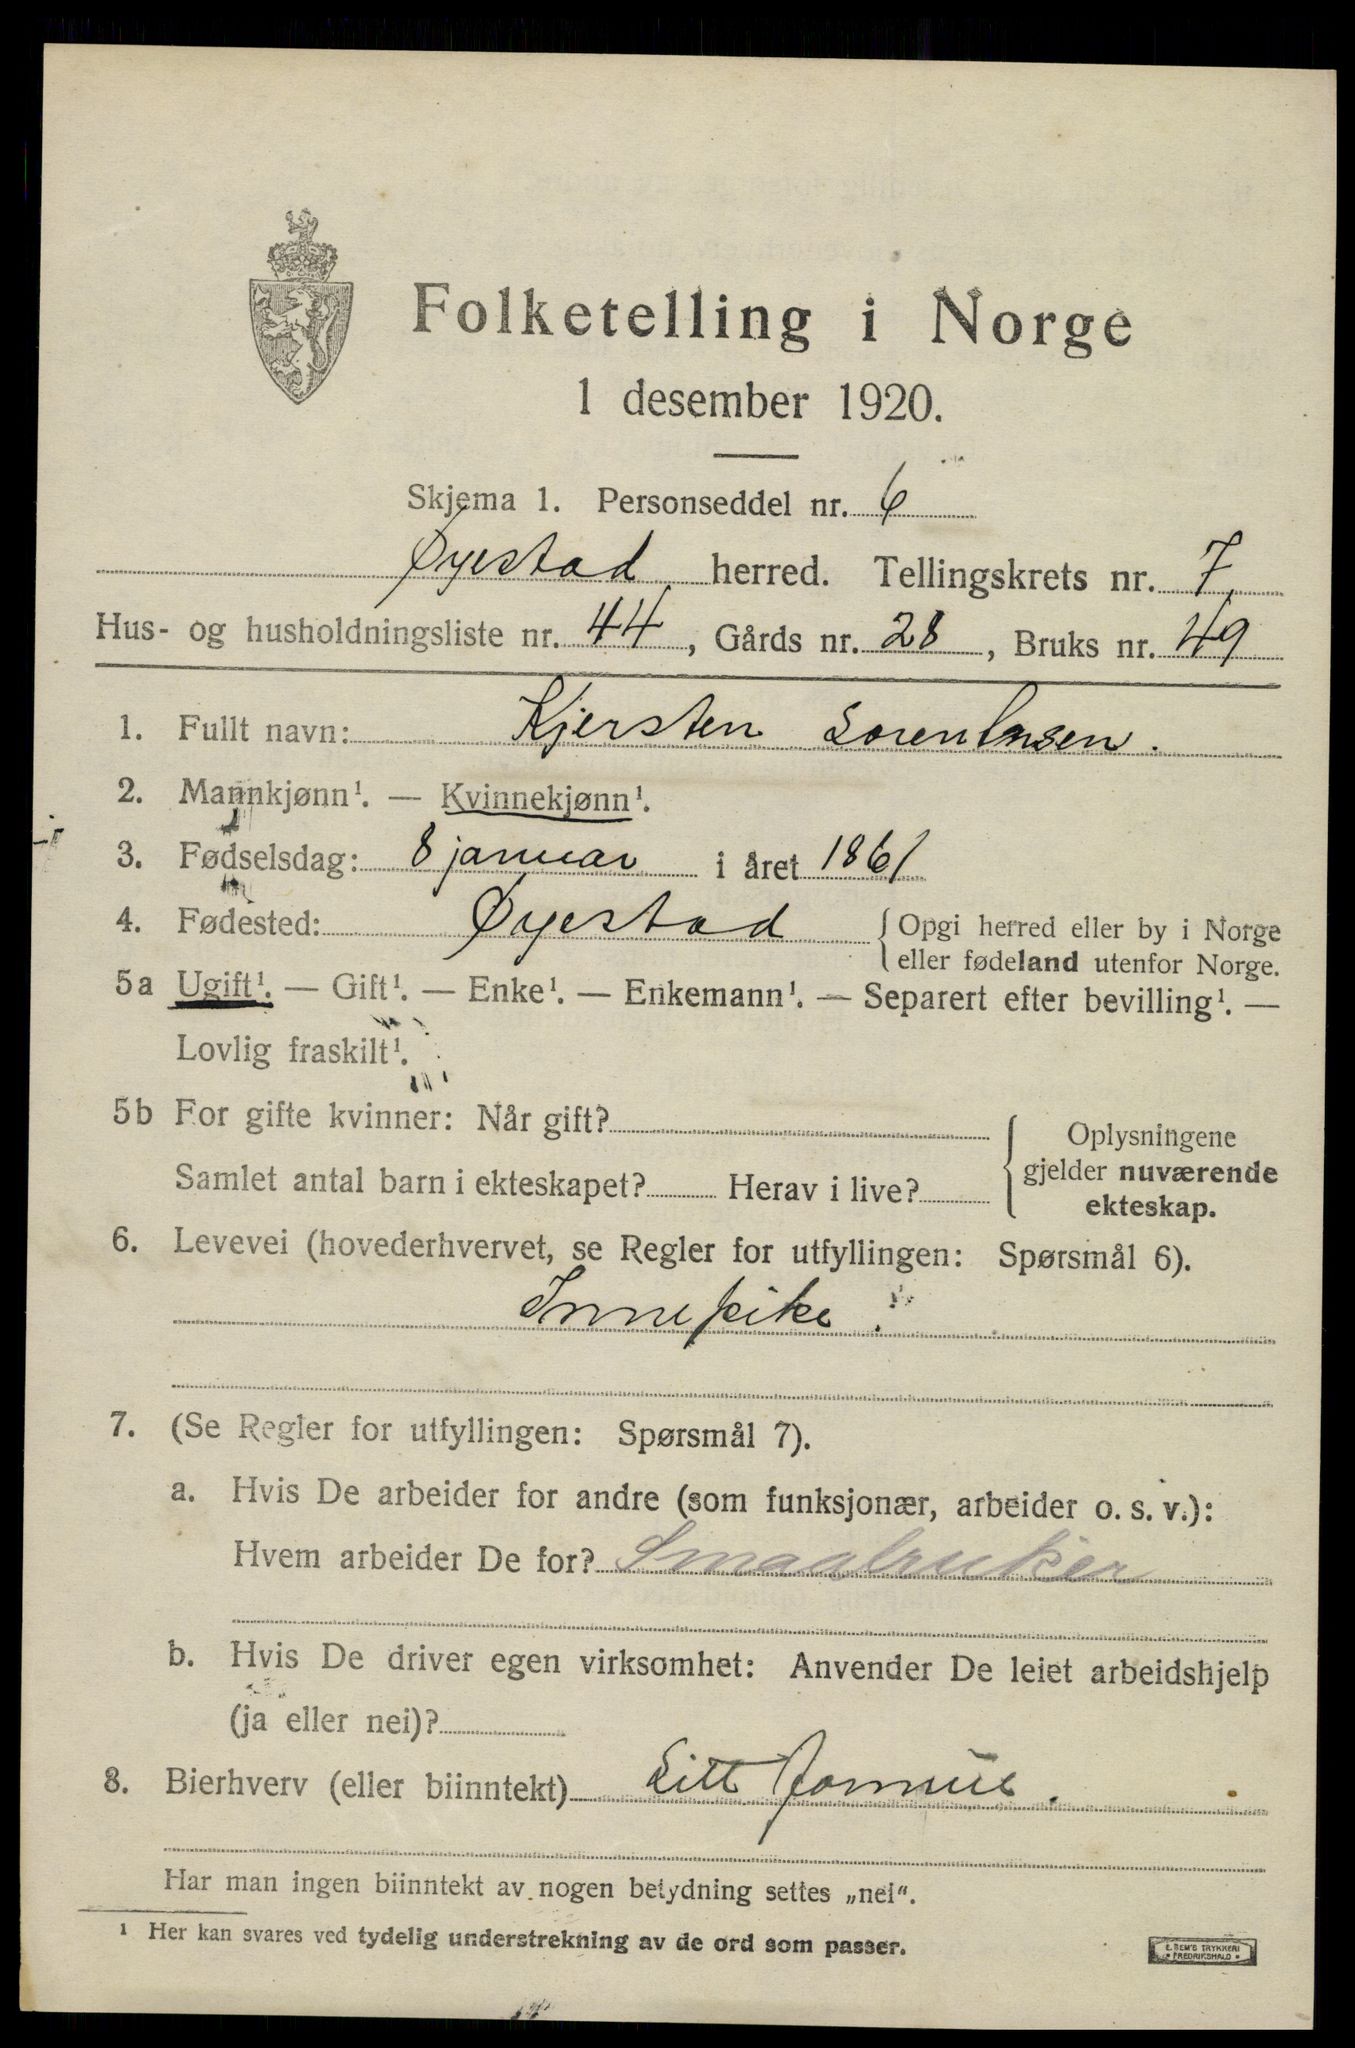 Folketelling i Norge
1 desember 1920.
Skjema 1. Personseddel nr. 6
Øyestad herred. Tellingskrets nr. 7
Hus- og husholdningsliste nr. 44, Gårds nr. 28, Bruks nr. 49
1. Fullt navn: Kjersten Lorentnsen.
2. Mannkjønn¹. — Kvinnekjønn¹.
3. Fødselsdag: 8 januar i året 1861
4. Fødested: Øyestad { Opgi herred eller by i Norge
eller fødeland utenfor Norge.
5a Ugift¹. — Gift¹. — Enke¹. — Enkemann¹. — Separert efter bevilling¹. —
Lovlig fraskilt¹.
5b For gifte kvinner: Når gift?
Samlet antal barn i ekteskapet? Herav i live?
{ Oplysningene
gjelder nuværende
ekteskap.
6. Levevei (hovederhvervet, se Regler for utfyllingen: Spørsmål 6).
Innepike.
7. (Se Regler for utfyllingen: Spørsmål 7).
a. Hvis De arbeider for andre (som funksjonær, arbeider o. s. v.):
Hvem arbeider De for? Smaabruker
b. Hvis De driver egen virksomhet: Anvender De leiet arbeidshjelp
(ja eller nei)?
8. Bierhverv (eller biinntekt) Litt
Har man ingen biinntekt av nogen betydning settes „nei“.
¹ Her kan svares ved tydelig understrekning av de ord som passer.
E. SEM'S TRYKKERI
FREDRIKSHALD